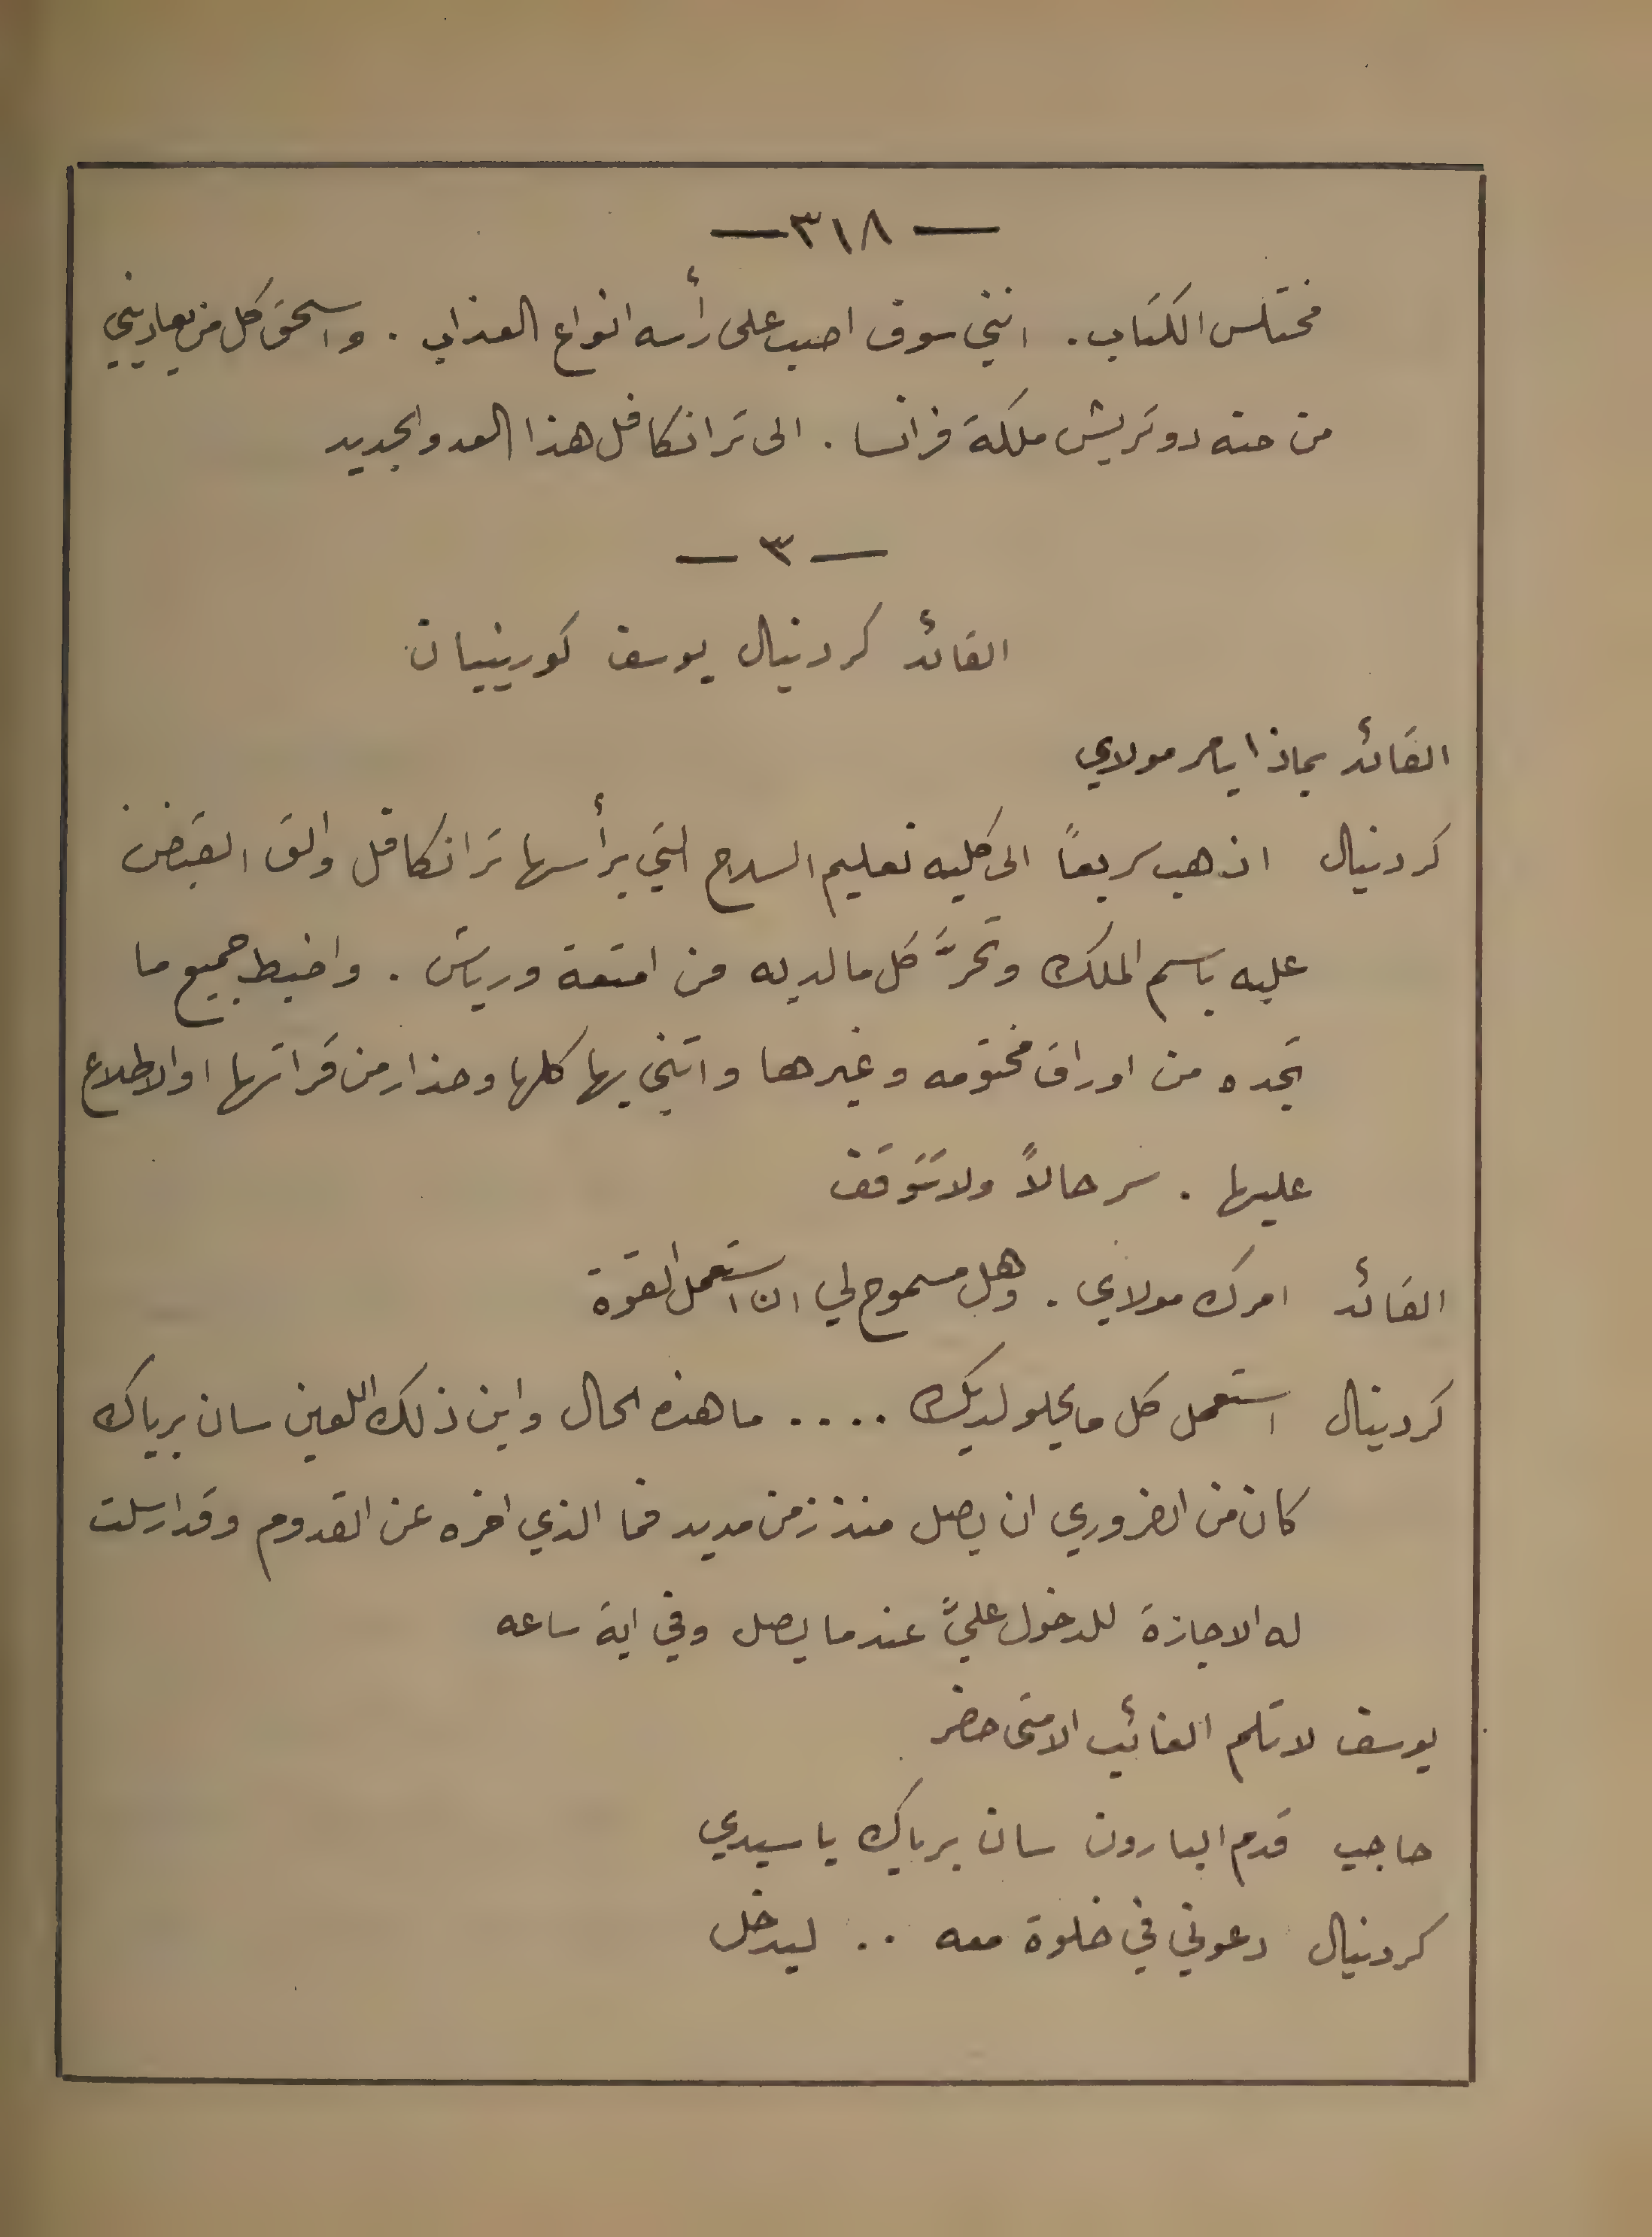 — ٣١٨ —
مختلس الكتاب . انني سوف اصب على رأسه انواع العذاب . واسحق كل من يعاديني
من حنه دوتريش ملكة فرانسا . الى ترانكافل هذا العدو الجديد
— ٣ —
القائد كردينال يوسف كورينيان
القائد بماذا يامر مولاي
كردينال اذهب سريعاً الى كليه تعليم السلاح التي يرأسها ترانكافل والق القبض
عليه باسم الملك وتحرَّ كل مالديه من امتعة ورياش . واضبط جميع ما
تجده من اوراق مختومه وغيرها واتني بها كلها وحذار من قراتها او الاطلاع
عليها . سر حالاً ولا تتوقف
القائد امرك مولاي . وهل مسموح لي ان استعمل القوة
كردينال استعمل كل ما يحلو لديك .... ما هذه الحال واين ذلك اللعين سان برياك
كان من الضروري ان يصل منذ زمن مديد فما الذي اخره عن القدوم وقد ارسلت
له الاجازة للدخول عليَّ عندما يصل وفي اية ساعه
يوسف لا تلم الغائب الا متى حضر
حاجب قدم البارون سان برياك يا سيدي
كردينال دعوني في خلوة معه .. ليدخل